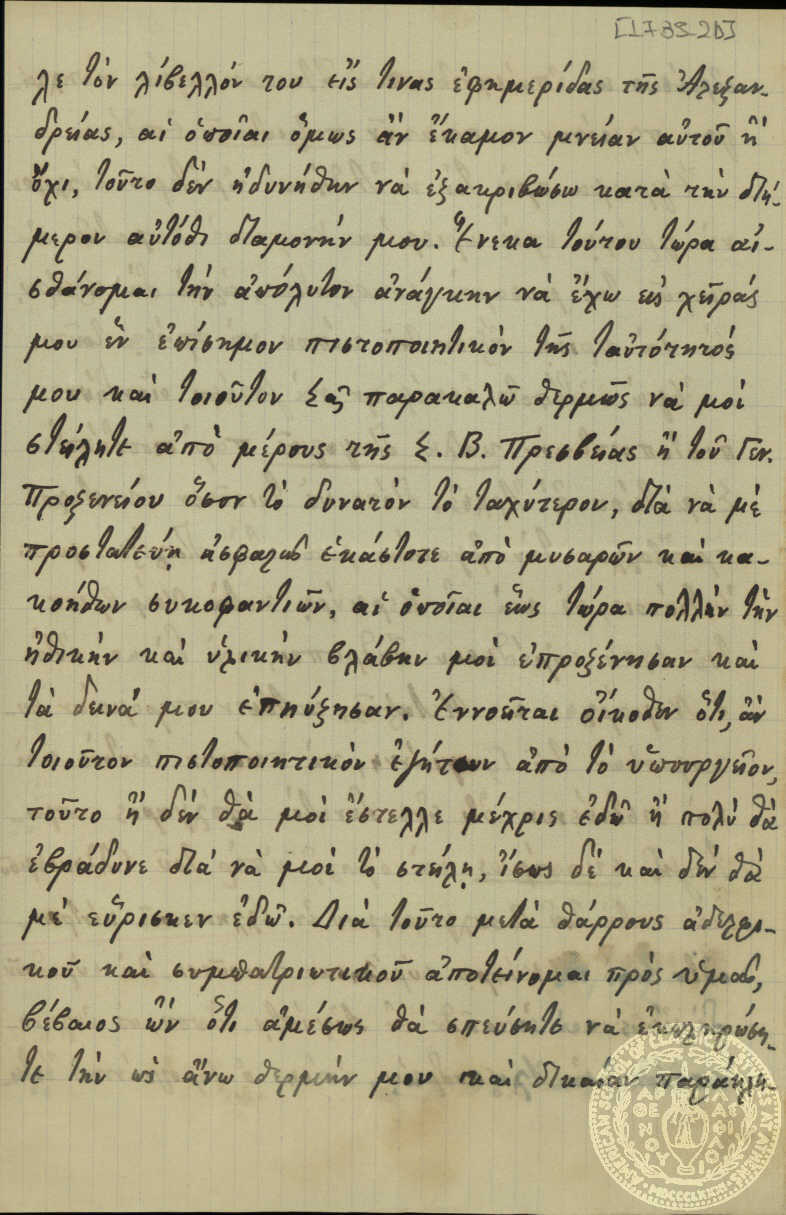 [1739-2b]
λε τὸν λίβελλόν του εἴς τινας ἐφημερίδας τῆς Ἀλεξαν-
δρείας, αἱ ὁποῖαι ὅμως ἂν ἔκαμον μνείαν αὐτοῦ ἢ
ὄχι, τοῦτο δὲν ἠδυνήθην νὰ ἐξακριβώσω κατὰ τὴν διή-
μερον αὐτόθι διαμονήν μου. Ἕνεκα τούτου τώρα αἰ-
σθάνομαι τὴν ἀπόλυτον ἀνάγκην νὰ ἔχω εἰς χεῖράς
μου ἓν ἐπίσημον πιστοποιητικὸν τῆς ταὐτότητός
μου καὶ τοιοῦτον Σᾶς παρακαλῶ θερμῶς νὰ μοὶ
στείλητε ἀπὸ μέρους τῆς Ἑ. Β. Πρεσβείας ἢ τοῦ Γεν.
Προξενείου ὅσον τὸ δυνατὸν τὸ ταχύτερον, διὰ νὰ μὲ
προστατεύῃ ἀσφαλῶς ἑκάστοτε ἀπὸ μυσαρῶν καὶ κα-
κοήθων συκοφαντιῶν, αἱ ὁποῖαι ἕως τώρα πολλὴν τὴν
ἠθικὴν καὶ ὑλικὴν βλάβην μοὶ ἐπροξένησαν καὶ
τὰ δεινά μου ἐπηύξησαν. Ἐννοεῖται οἴκοθεν ὅτι, ἂν
τοιοῦτον πιστοποιητικὸν ἐζήτουν ἀπὸ τὸ ὑπουργεῖον,
τοῦτο ἢ δὲν θὰ μοὶ ἔστελλε μέχρις ἐδῶ ἢ πολὺ θὰ
ἐβράδυνε διὰ νὰ μοὶ τὸ στείλῃ, ἴσως δὲ καὶ δὲν θὰ
μὲ εὕρισκεν ἐδῶ. Διὰ τοῦτο μετὰ θάρρους ἀδελφι-
κοῦ καὶ συμπατριωτικοῦ ἀποτείνομαι πρὸς ὑμᾶς,
βέβαιος ὢν ὅτι ἀμέσως θὰ σπεύσητε νὰ ἐκπληρώση-
τε τὴν ὡς ἄνω θερμήν μου καὶ δικαίαν παράκλη-